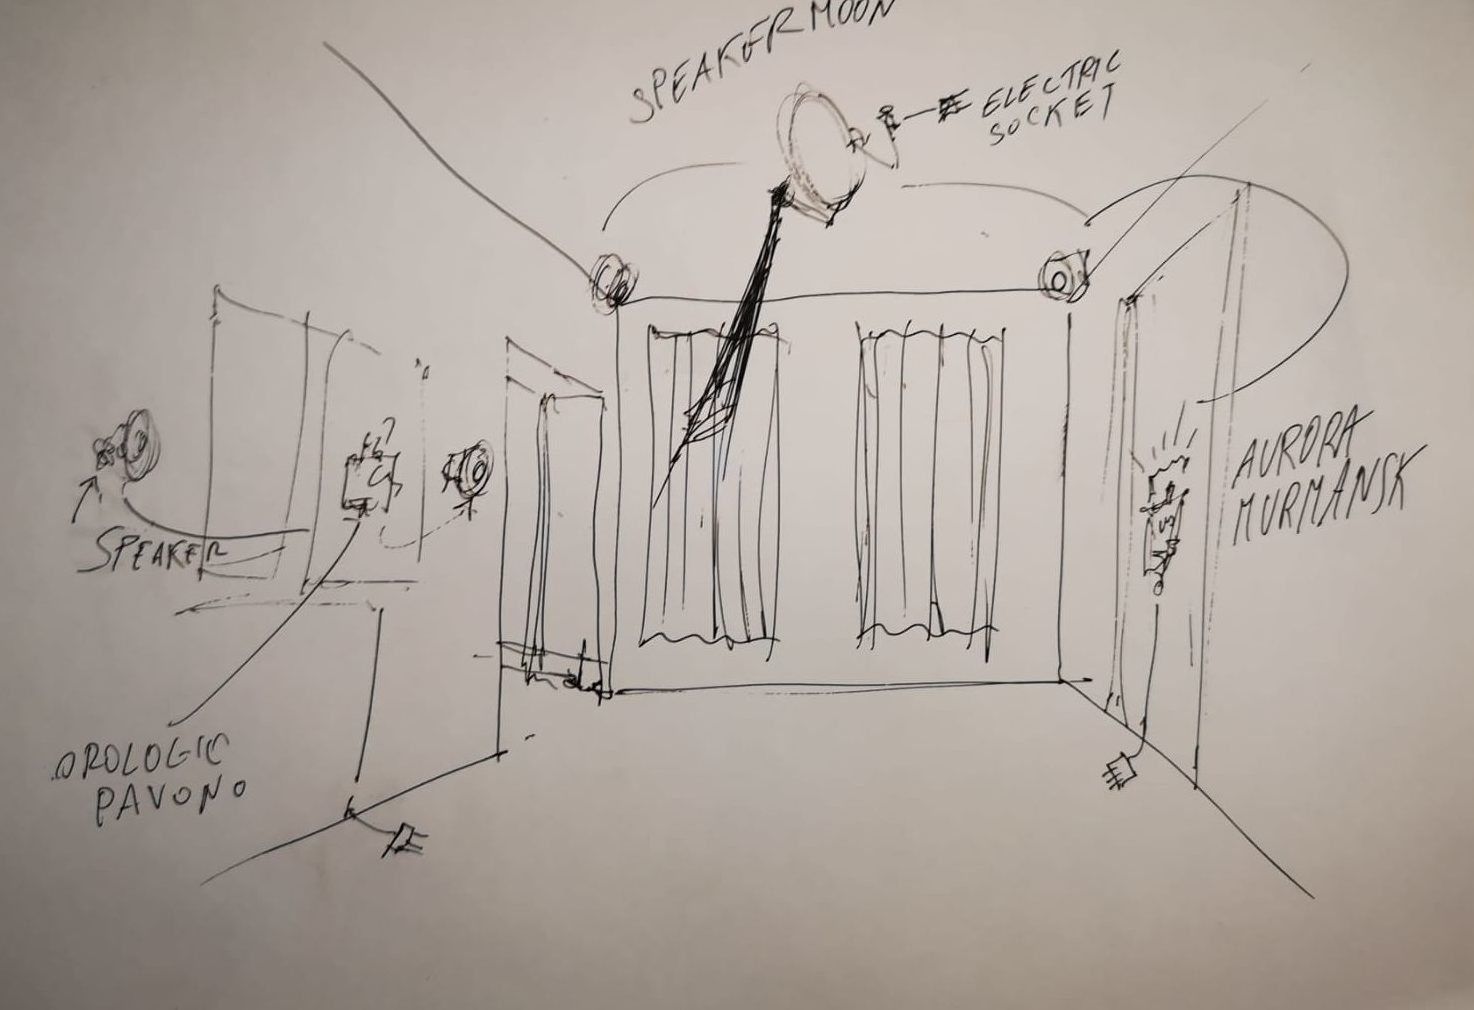 SPEAKER MOON
ELECTRIC
SOCKET
AURORA
MURMANSK
SPEAKER
OROLOGIO
PAVONO